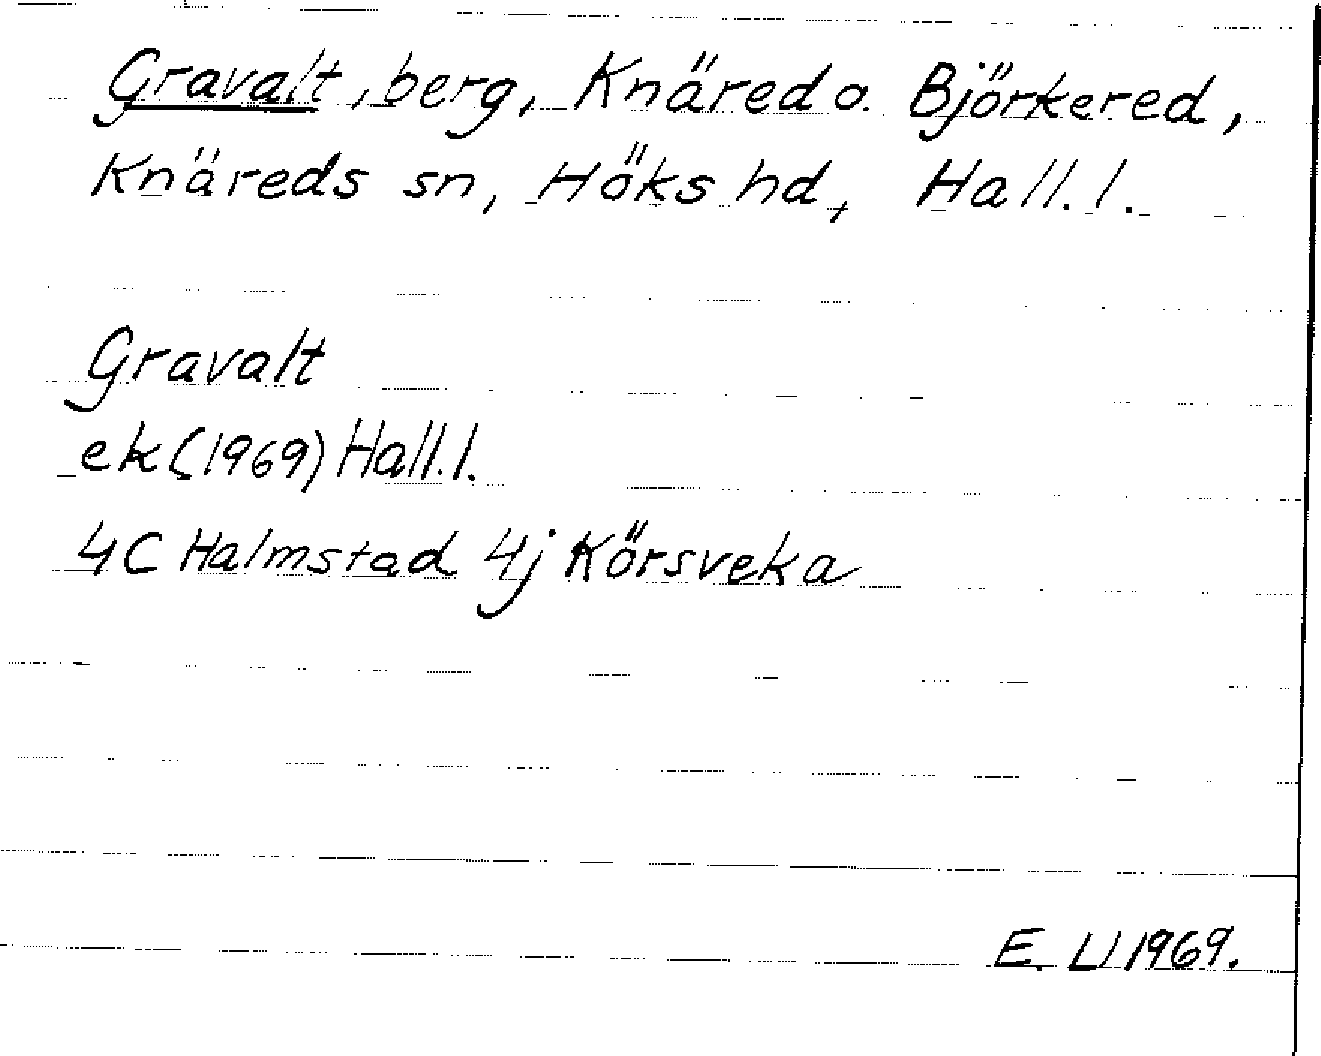 Gravalt, berg, Knäred o. Björkered,
Knäreds sn, Höks hd, Hall. l.
Gravalt
ek (1969) Hall. l.
4C Halmstad 4j Körsveka
E. U 1969.